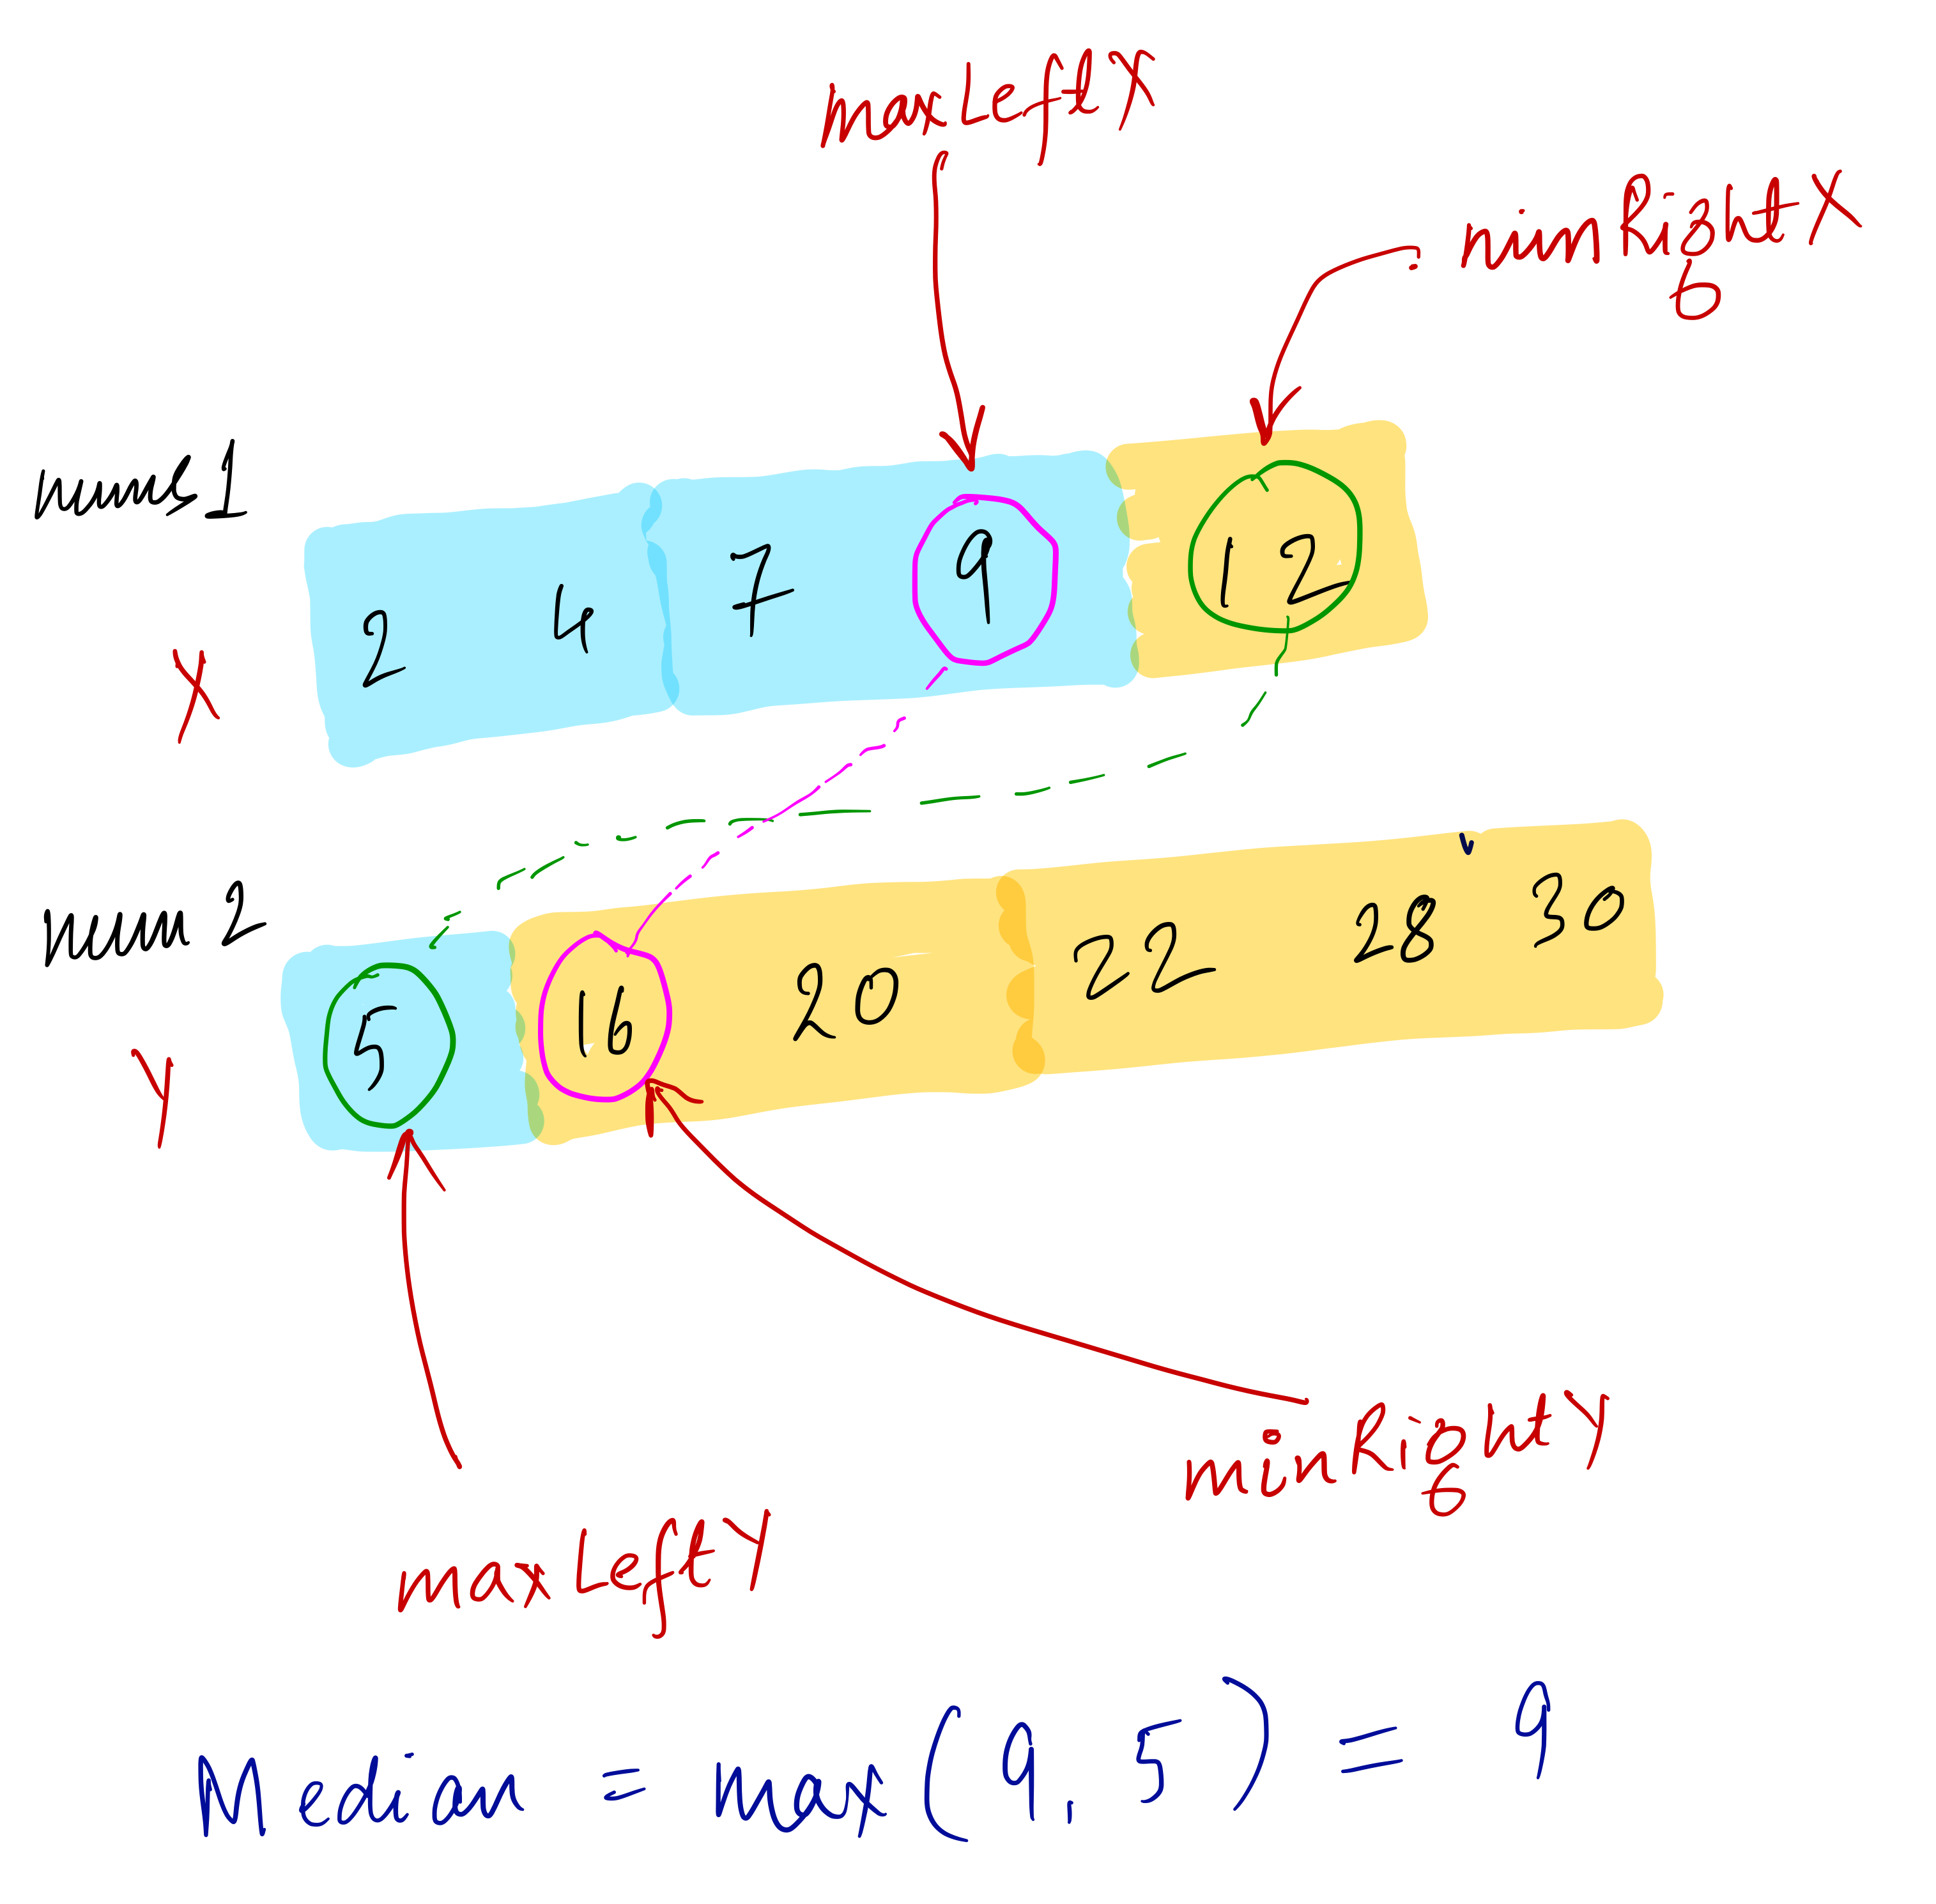 maxLeftX
minRightX
nums1
2 4 7 9 12
X
num 2
5 16 20 22 28 30
Y
minRightY
maxLeftY
Median = max(9,5) = 9